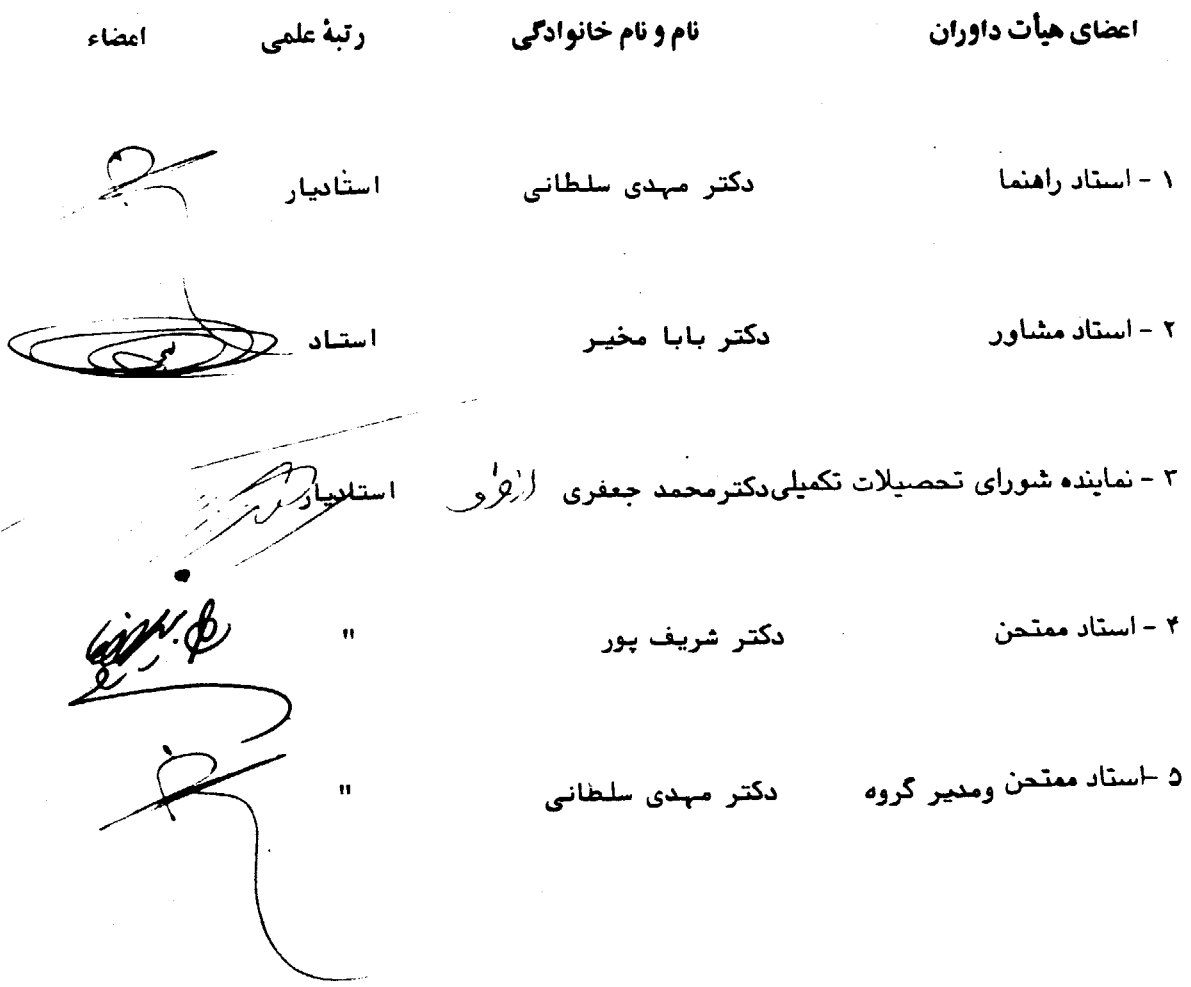 اعضای هیأت داوران نام و نام خانوادگی رتبهٔ علمی امضاء
۱ - استاد راهنما دکتر مهدی سلطانی استادیار
۲ - استاد مشاور دکتر بابا مخیر استاد
۳ - نماینده شورای تحصیلات تکمیلی دکتر محمد جعفری استادیار
۴ - استاد ممتحن دکتر شریف پور "
۵ - استاد ممتحن ومدیر گروه دکتر مهدی سلطانی "